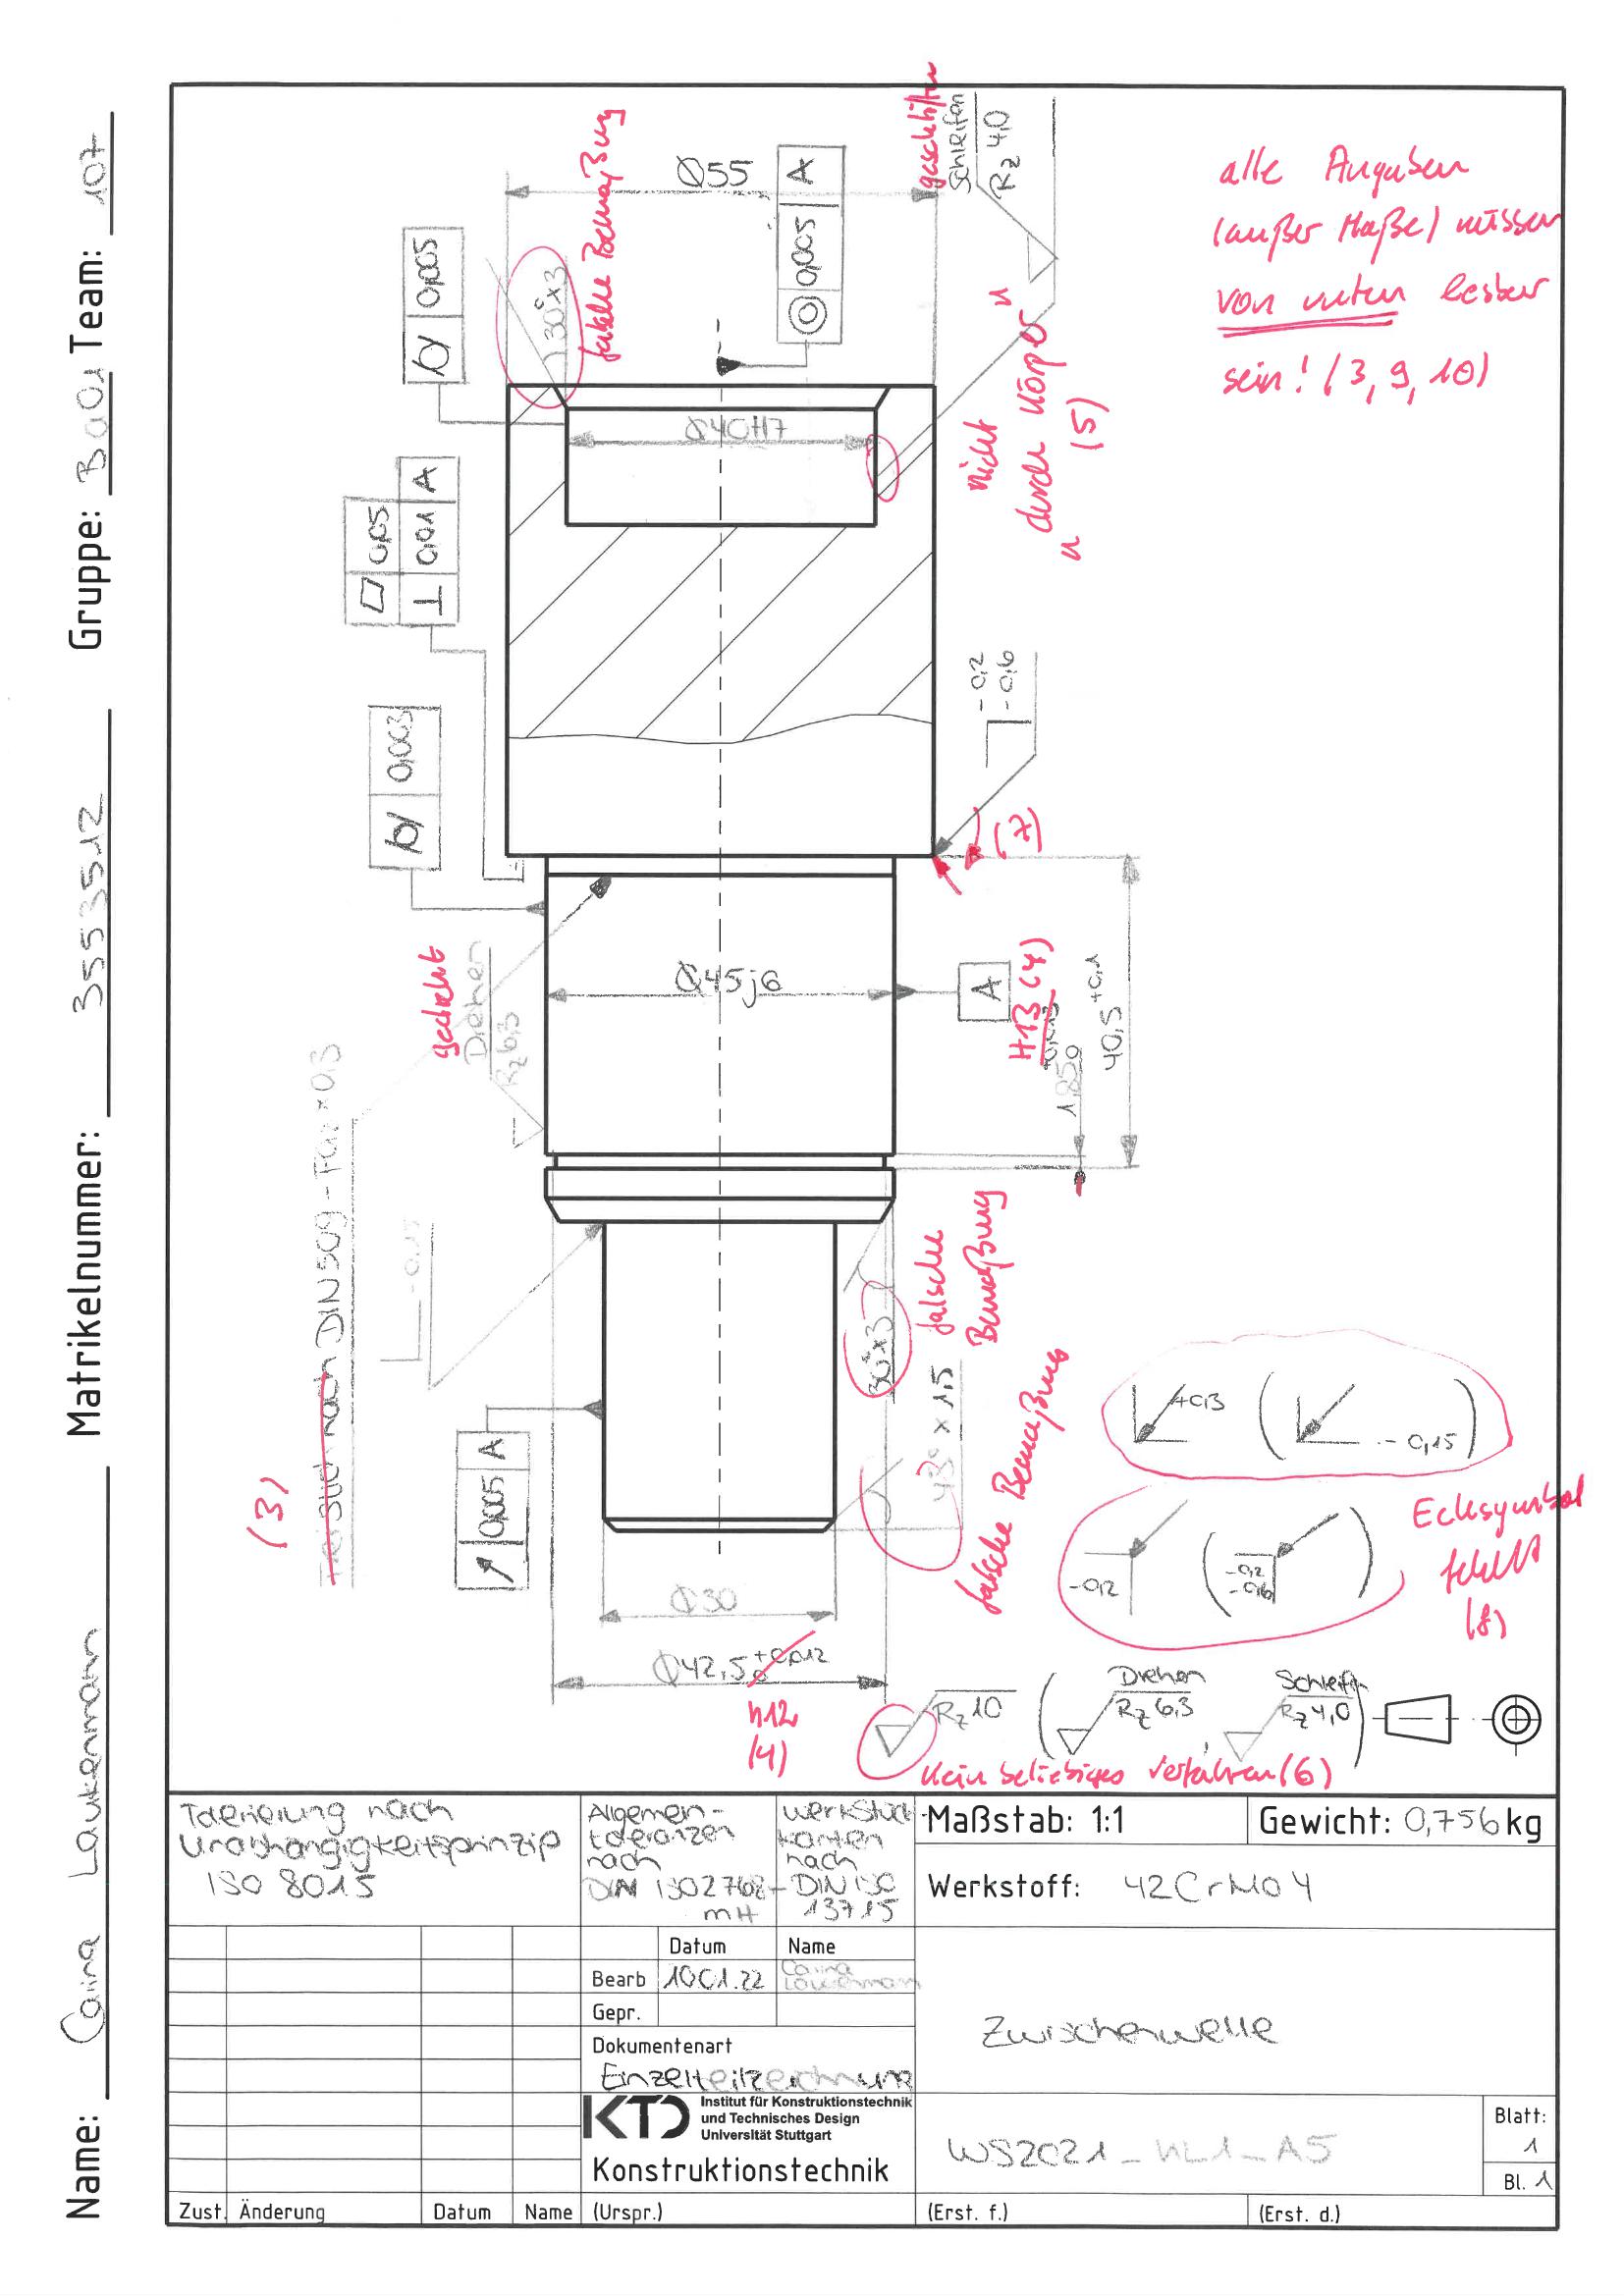 Name: Carina Laukenmann Matrikelnummer: 3553512 Gruppe: Ba01 Team: 107
alle Angaben
(außer Maße) müssen
von unten lesbar
sein! (3, 9, 10)
Ø55
falsche Bemaßung
30°x3
0,005
◎ 0,005 A
geschliffen
Schleifen
Rz 4,0
Ø40H7
nicht
durch Körper
(5)
0,05
⊥ 0,01 A
0,003
-0,2
-0,6
(7)
Ø45j6
A
gedreht
Drehen
Rz 6,3
H13 (4)
1,85
0
40,5 +0,1
(3)
DIN 509 - F
x 0,3
falsche
Bemaßung
30°x3
x 1,5
falsche Bemaßung
0,005 A
Ø30
Ø42,5 +0,012
0
h12
(4)
+0,3
( -0,15 )
-0,2
( -0,2
-0,6 )
Ecksymbol
fehlt
(8)
Rz 10
( Drehen
Rz 6,3
Schleifen
Rz 4,0 )
kein beliebiges Verfahren (6)
Tolerierung nach
Unabhängigkeitsprinzip
ISO 8015
Allgemein-
toleranzen
nach
DIN ISO 2768-
mH
Werkstück
kanten
nach
DIN ISO
13715
Maßstab: 1:1
Gewicht: 0,756 kg
Werkstoff: 42CrMo4
Datum Name
Bearb 10.01.22 Carina Laukenmann
Gepr.
Dokumentenart
Einzelteilzeichnung
Zwischenwelle
KTD Institut für Konstruktionstechnik
und Technisches Design
Universität Stuttgart
Konstruktionstechnik
WS2021_KL1_A5
Blatt:
1
Bl. 1
Zust. Änderung Datum Name (Urspr.) (Erst. f.) (Erst. d.)